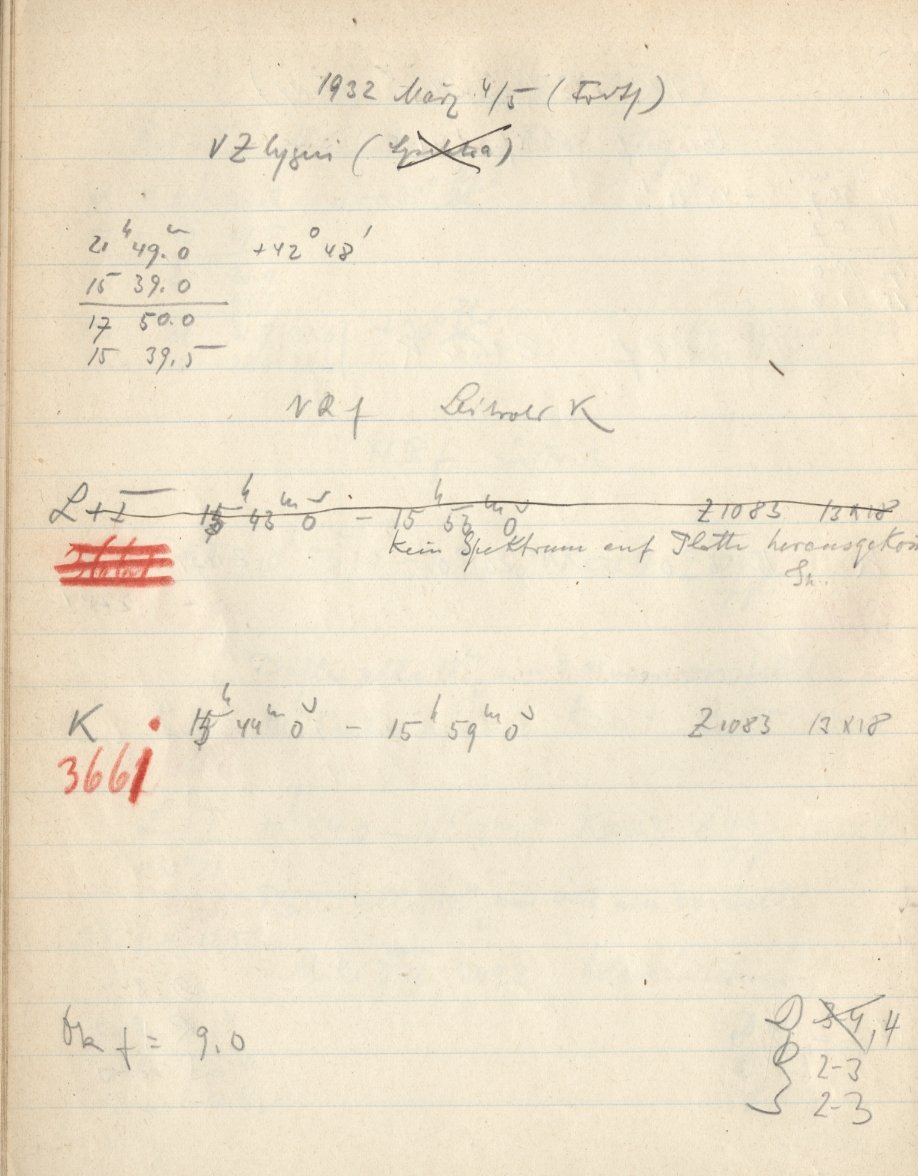 1932 März 4/5 (Forts)
VZ Cygni (Spektra)
21h 49m.0 +42° 48'
15 39.0
17 50.0
15 39.5
Leitrohr K
L+I 15h 43m 0s – 15h 53m 0s Z1083 13x18
Kein Spektrum auf Platte herausgekom
K 15h 44m 0s – 15h 59m 0s Z1083 13x18
3661
f = 9.0
3-4, 4
2-3
2-3